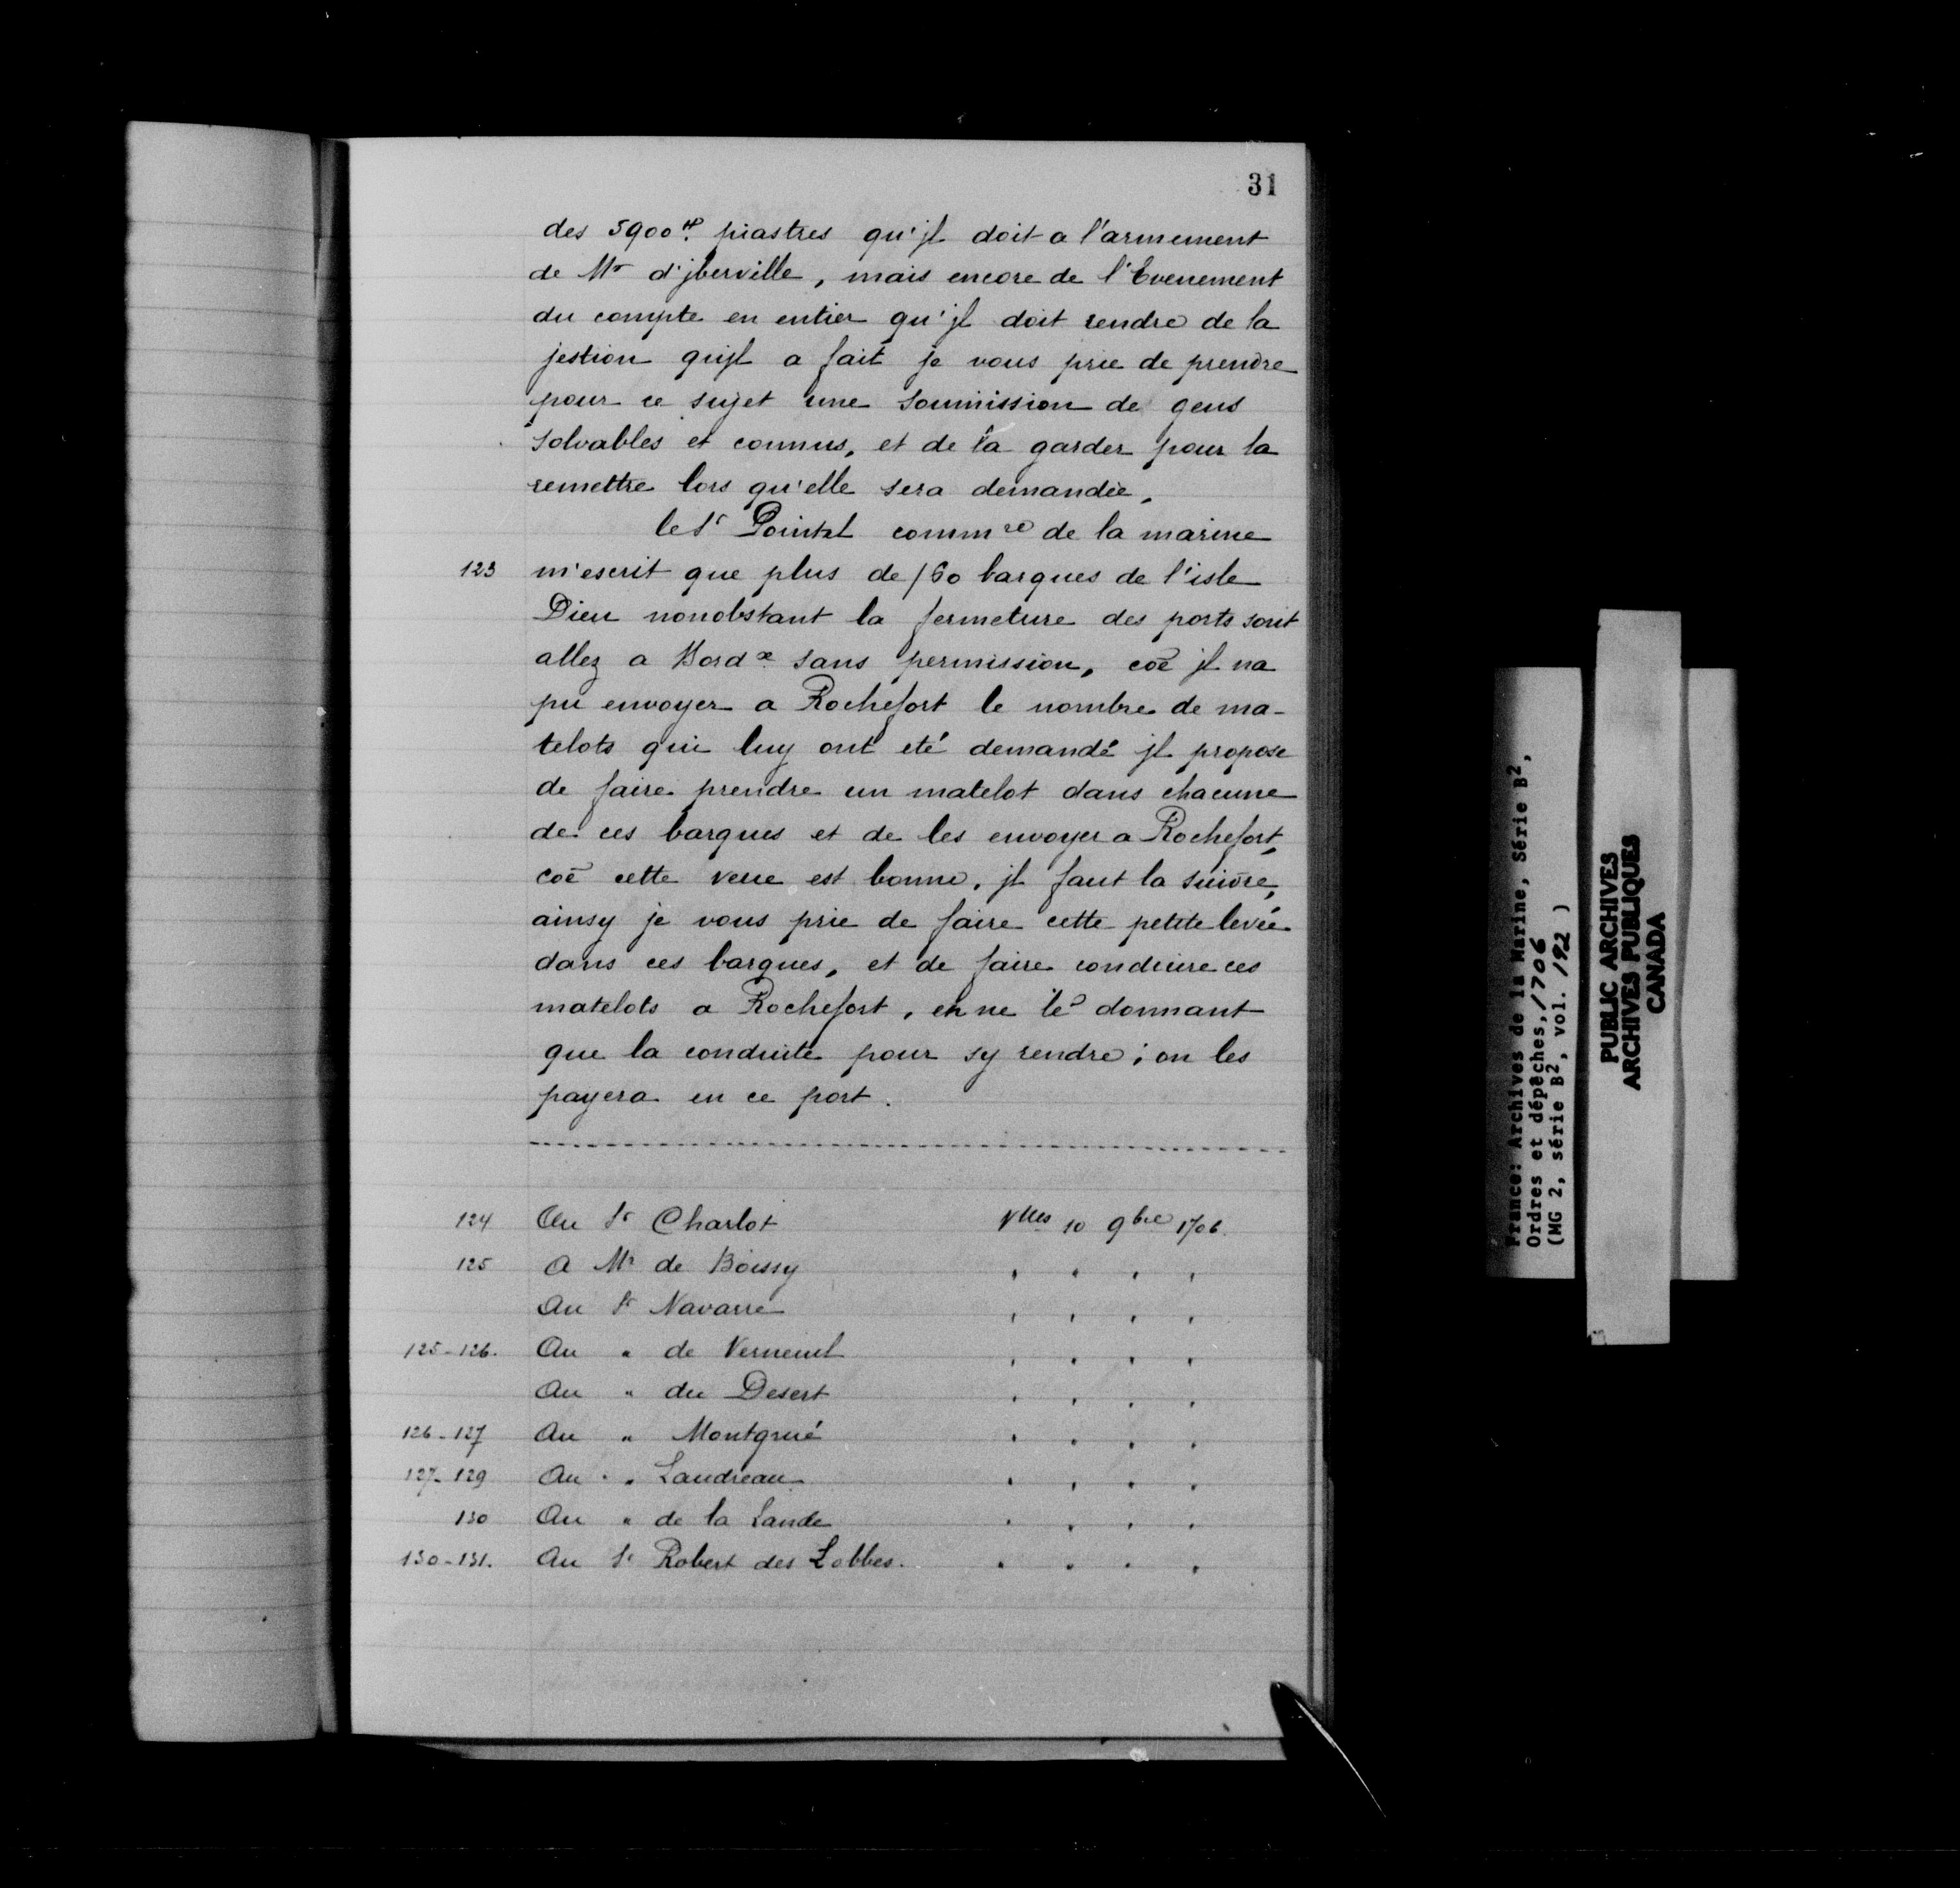 31
des 5900# piastres qu'jl doit a l'armement
de Mr d'jberville, mais encore de l'Evenement
du compte en entier qu'jl doit rendre de la
jestion qu'jl a fait je vous prie de prendre
pour ce sujet une soumission de gens
solvables et connus, et de la garder pour la
remettre lors qu'elle sera demandée,
le Sr Pointel commre de la marine
123 m'escrit que plus de 160 barques de l'isle
Dieu nonobstant la fermeture des ports sont
allez a Bordx sans permission, coē jl na
pu envoyer a Rochefort le nombre de ma-
telots qui luy ont eté demandé jl propose
de faire prendre un matelot dans chacune
de ces barques et de les envoyer a Rochefort,
coē cette veue est bonne, jl faut la suivre,
ainsy je vous prie de faire cette petite levée
dans ces barques, et de faire conduire ces
matelots a Rochefort, en ne le donnant
que la conduite pour sy rendre; on les
payera en ce port.
124 Au Sr Charlot Vlles 10 9bre 1706.
125 A Mr de Boissy " " " "
Au Sr Navarre " " " "
125-126. Au " de Verneuil " " " "
Au " du Desert " " " "
126-127 Au " Montgrué " " " "
127-129 Au " Landreau " " " "
130 Au " de la Lande " " " "
130-131. Au Sr Robert des Lobbes. " " " "
France: Archives de la Marine, Série B2,
Ordres et dépêches, 1706
(MG 2, série B2, vol. 192 )
PUBLIC ARCHIVES
ARCHIVES PUBLIQUES
CANADA